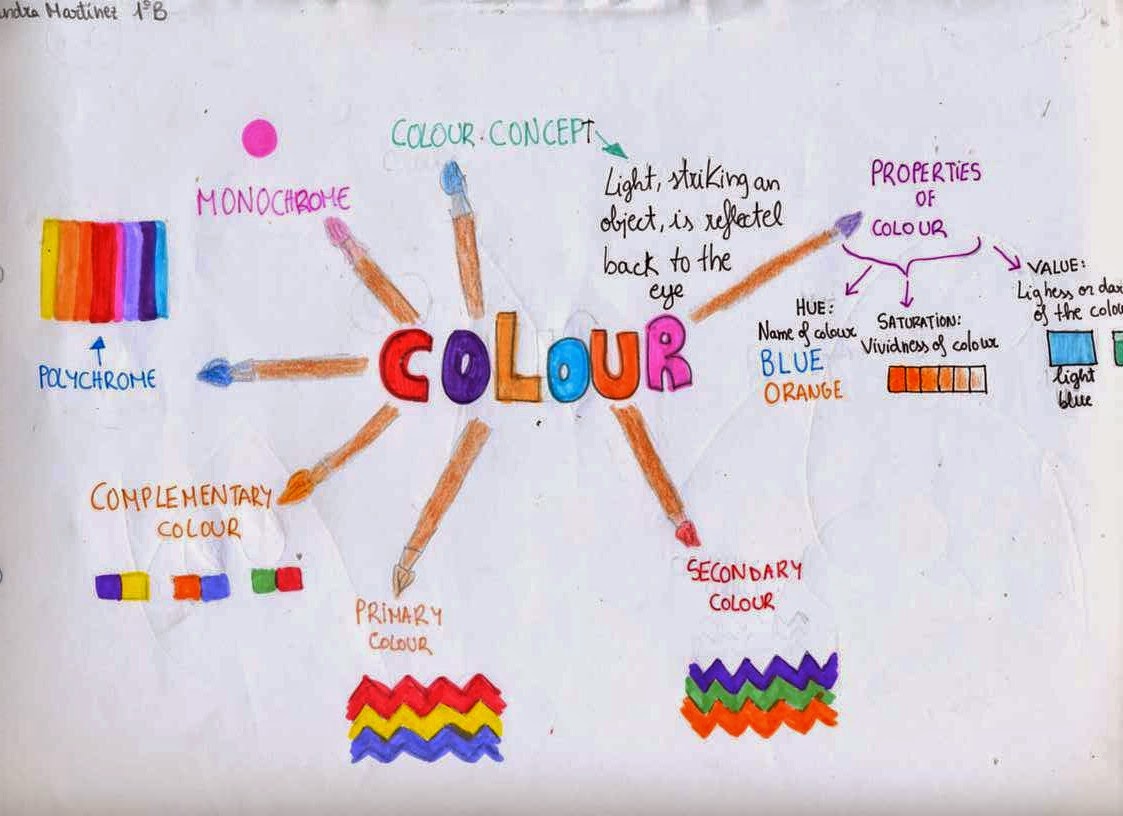 ndra Martínez 1ºB
COLOUR CONCEPT
Light, striking an
object, is reflectel
back to the
eye
MONOCHROME
POLYCHROME
COLOUR
PROPERTIES
OF
COLOUR
HUE:
Name of colour
BLUE
ORANGE
SATURATION:
Vividness of colour
VALUE:
Lighess or dar
of the colou
light
blue
COMPLEMENTARY
COLOUR
PRIMARY
COLOUR
SECONDARY
COLOUR